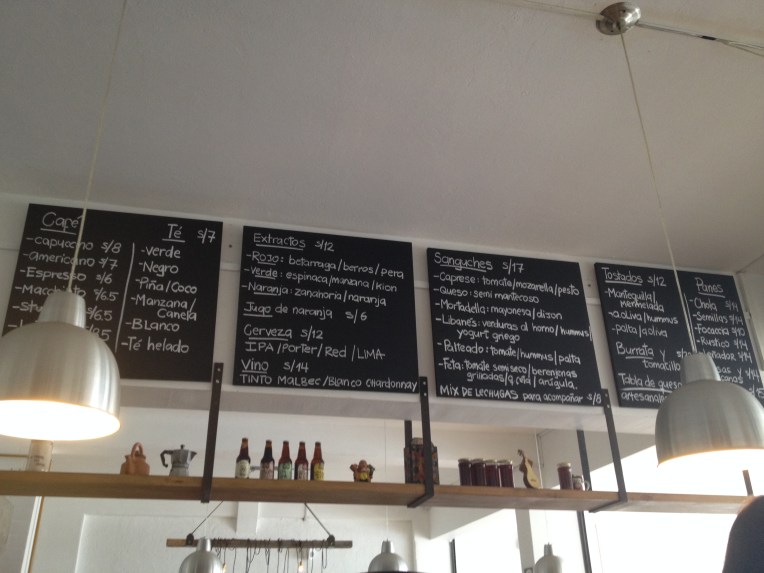 Café
-capuccino s/8
-americano s/7
-Espresso s/6
-Macchiato s/6.5
s/6.5
Té s/7
-verde
-Negro
-Piña/Coco
-Manzana/
Canela
-Blanco
-Té helado
Extractos s/12
-Rojo: betarraga/berros/pera
-Verde: espinaca/manzana/kion
-Naranja: zanahoria/naranja
Jugo de naranja s/6
Cerveza s/12
IPA/Porter/Red/LIMA
Vino s/14
TINTO MALBEC/Blanco Chardonnay
Sanguches s/17
-Caprese: tomate/mozarella/pesto
-Queso: semi mantecoso
-Mortadella: mayonesa/dizon
-Libanés: verduras al horno/hummus/
yogurt griego
-Palteado: tomate/hummus/palta
-Feta: tomate semi seco/berenjenas
grilladas/q. oña/arúgula.
MIX DE LECHUGAS para acompañar s/8
Tostados s/12
-Mantequilla/
Mermelada
-a.oliva/hummus
-palta/a.oliva
Burrata y
tomatillo
Tabla de queso
artesanal
Panes
-Chola
-Semillas
-Focaccia
-Rustico